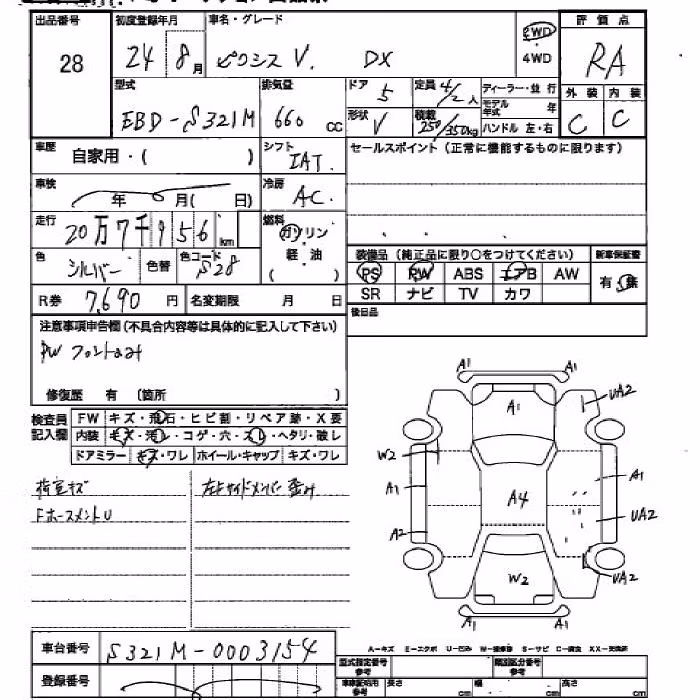 出品番号 28
初度登録年月 24 8月
車名・グレード ピクシス V. DX
2WD
・4WD
評価点 RA
外装 内装 C C
型式 EBD-S321M
排気量 660 cc
ドア 5
定員 4/2人
ディーラー・並行
モデル年式 年
形状 V
積載 250/350kg
ハンドル 左・右
車歴 自家用・( )
シフト IAT.
セールスポイント(正常に機能するものに限ります)
車検 年 月( 日)
冷房 AC.
走行 20万7千956km
燃料 ガソリン・軽・油 ( )
色 シルバー 色替 色コード S28
装備品(純正品に限り○をつけてください)
新車保証書
PS PW ABS エアB AW
有・無
SR ナビ TV カワ
R券 7,690円 名変期限 月 日
後日品
注意事項申告欄(不具合内容等は具体的に記入して下さい)
PW フロントのみ
修復歴 有 〔箇所 〕
検査員記入欄
FW キズ・飛石・ヒビ割・リペア跡・X要
内装 キズ・汚レ・コゲ・穴・スレ・ヘタリ・破レ
ドアミラー キズ・ワレ ホイール・キャップ キズ・ワレ
荷室キズ
FホースメントU
左Fサイドメンバー歪み
A1 A1
A1
UA2
W2
A1
A1
A4
UA2
A2
W2
UA2
A1 A1
車台番号 S321M-0003154
登録番号
A-キズ E-エクボ U-凹み W-補修跡 S-サビ C-腐食 XX-交換済
型式指定番号 参考
類別区分番号 参考
参考 長さ cm 幅 cm 高さ cm